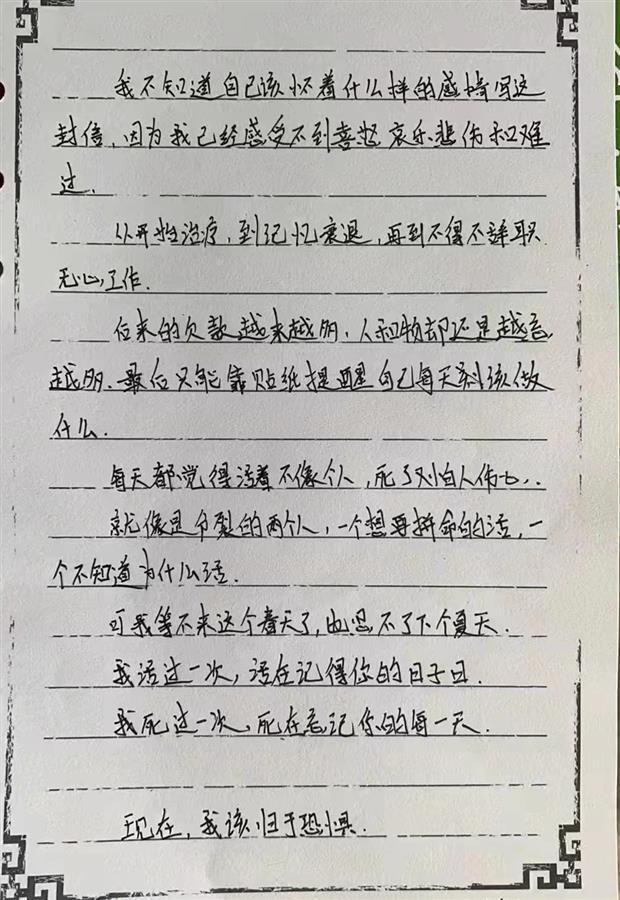 我不知道自己该怀着什么样的感情写这
封信，因为我已经感受不到喜怒哀乐悲伤和难
过.
从开始治疗，到记忆衰退，再到不得不辞职
无心工作.
后来的欠款越来越多，人和物却还是越忘
越多.最后只能靠贴纸提醒自己每天到该做
什么.
每天都觉得活着不像个人，死了又怕人伤心..
就像是分裂的两个人，一个想要拼命的活，一
个不知道为什么活.
可我等不来这个春天了，也见不了下个夏天.
我活过一次，活在记得你的日子里.
我死过一次，死在忘记你的每一天.
现在，我该归于恐惧.